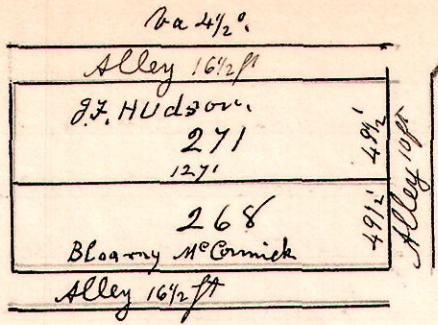 Va 4 1/2°.
Alley 16 1/2 ft
J.F. Hudson.
271
127'
49 1/2'
268
49 1/2'
McCormick
Alley 10 ft
Alley 16 1/2 ft